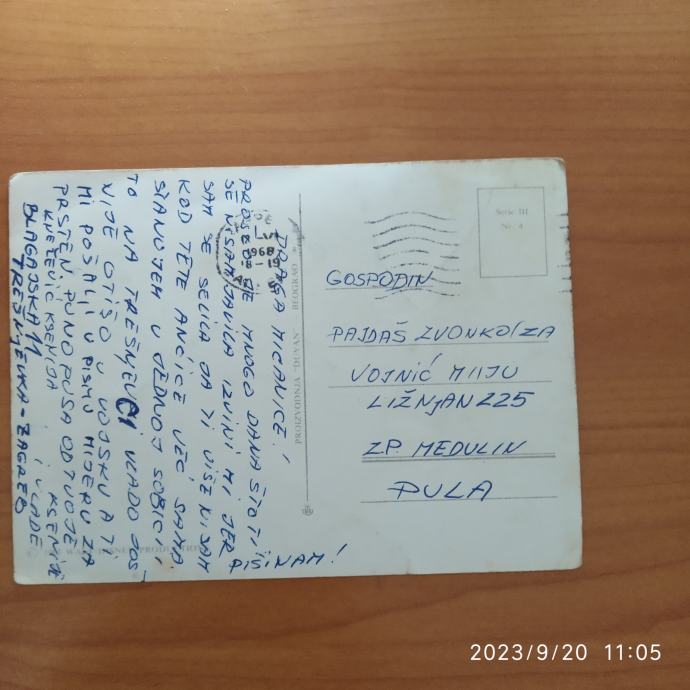 DRAGA MICAVICE!
PROŠLO JE MNOGO DANA ŠTO TI
SE NISAM JAVILA IZVINI MI JER
SAM SE SELILA DA TI VIŠE NISAM
KOD TETE ANČICE VEĆ SAMA
STANUJEM U JEDNOJ SOBICI I
TO NA TREŠNJEVCI VLADO JOŠ
NIJE OTIŠO U VOJSKU A TI
MI POŠALI U PISMU MIJERU ZA
PRSTEN, PUNO PUSA OD TVOJE
KSENIJE
KSENIJA I VLADE
BLAGAJSKA 11
TREŠNJEVKA-ZAGREB
PIŠI NAM!
PROIZVODNJA "DUVAN" BEOGRAD
WALT DISNEY PRODUCTION
1968
8-19
Serie III
Nr. 4
GOSPODIN
PAJDAŠ ZVONKO/ZA
VOJNIĆ MIJU
LIŽNJAN 225
ZP. MEDULIN
PULA
2023/9/20 11:05